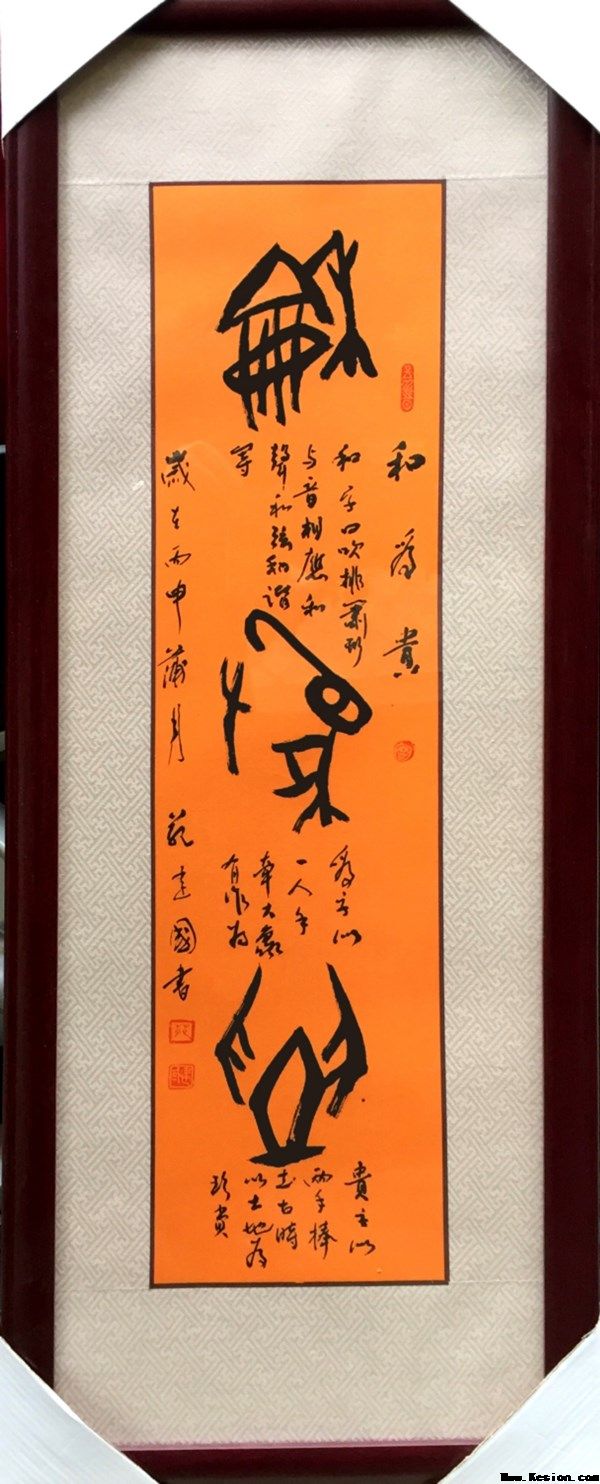 龢
爲
貴
和為貴
和字口吹排簫形
与音相應和
聲和弦和諧
等
為字似
一人手
牽大象
有作為
貴字似
两手捧
土古時
以土地為
珍貴
歲在丙申蒲月 國書
Www.Kesion.com